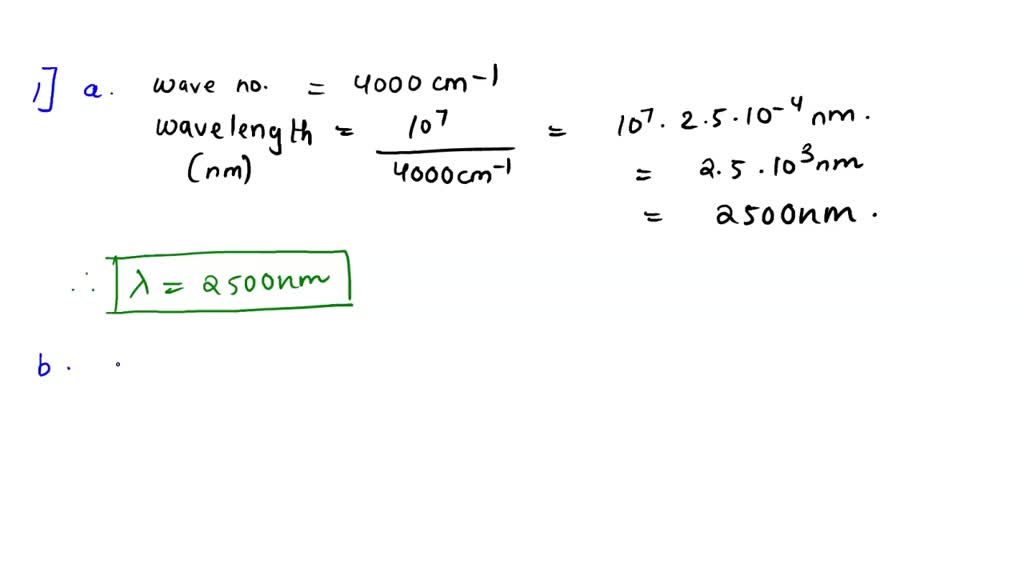 1] a. wave no. = 4000 cm-1
wavelength = 10^7 / 4000cm-1 = 10^7 . 2.5 . 10^-4 nm.
(nm) = 2.5 . 10^3 nm
= 2500nm.
∴ λ = 2500nm
b.